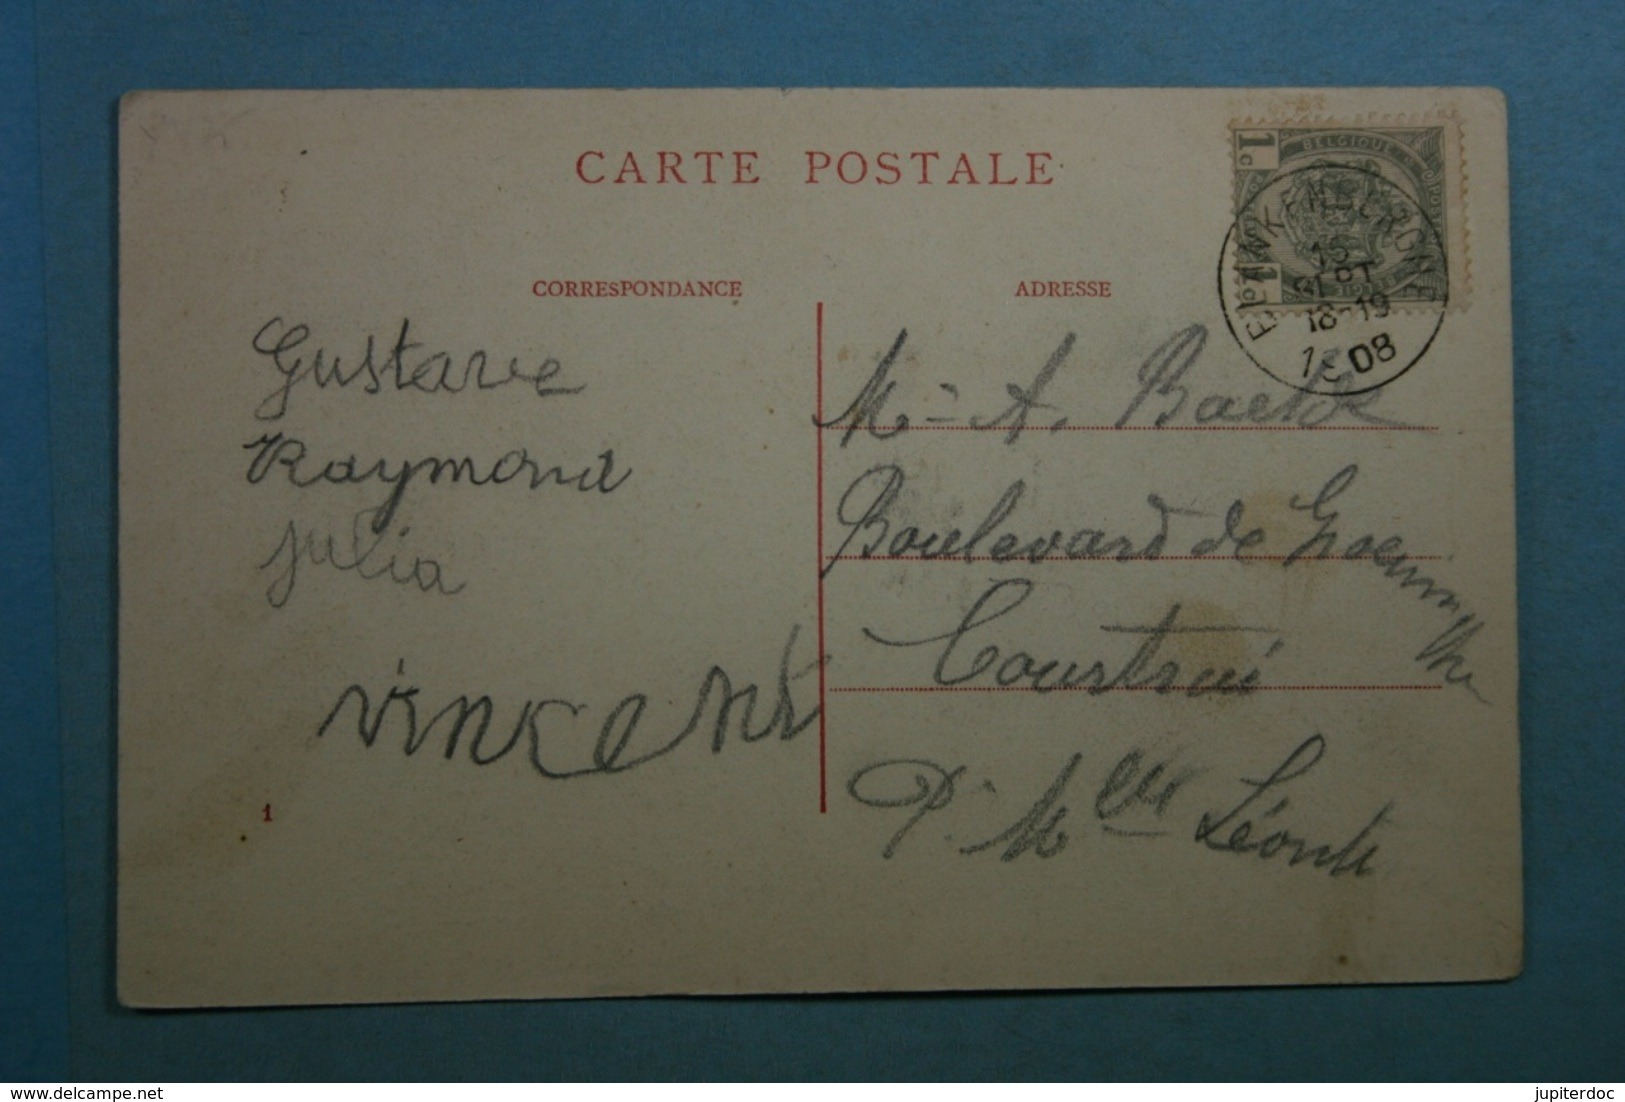 CARTE POSTALE
CORRESPONDANCE
ADRESSE
1 c
BELGIQUE
1 c
BELGIE
BLANKENBERGHE
15
18-19
1908
Gustave
Raymond
Julia
vincent
M- A.
Boulevard de Groeninghe
Courtrai
P. Melle Léonie
1
delcampe.net
jupiterdoc